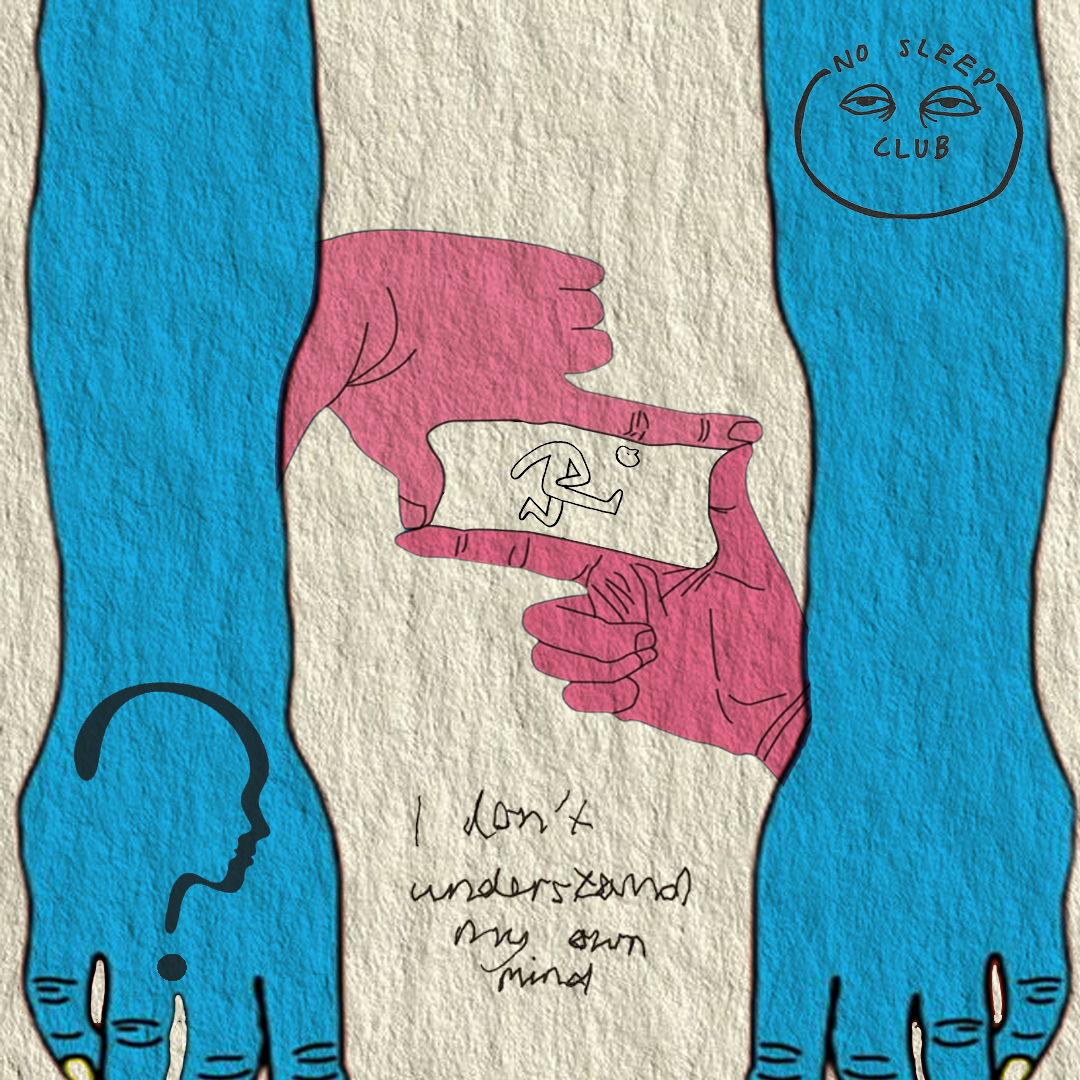 NO SLEEP
CLUB
I don't
understand
my own
mind